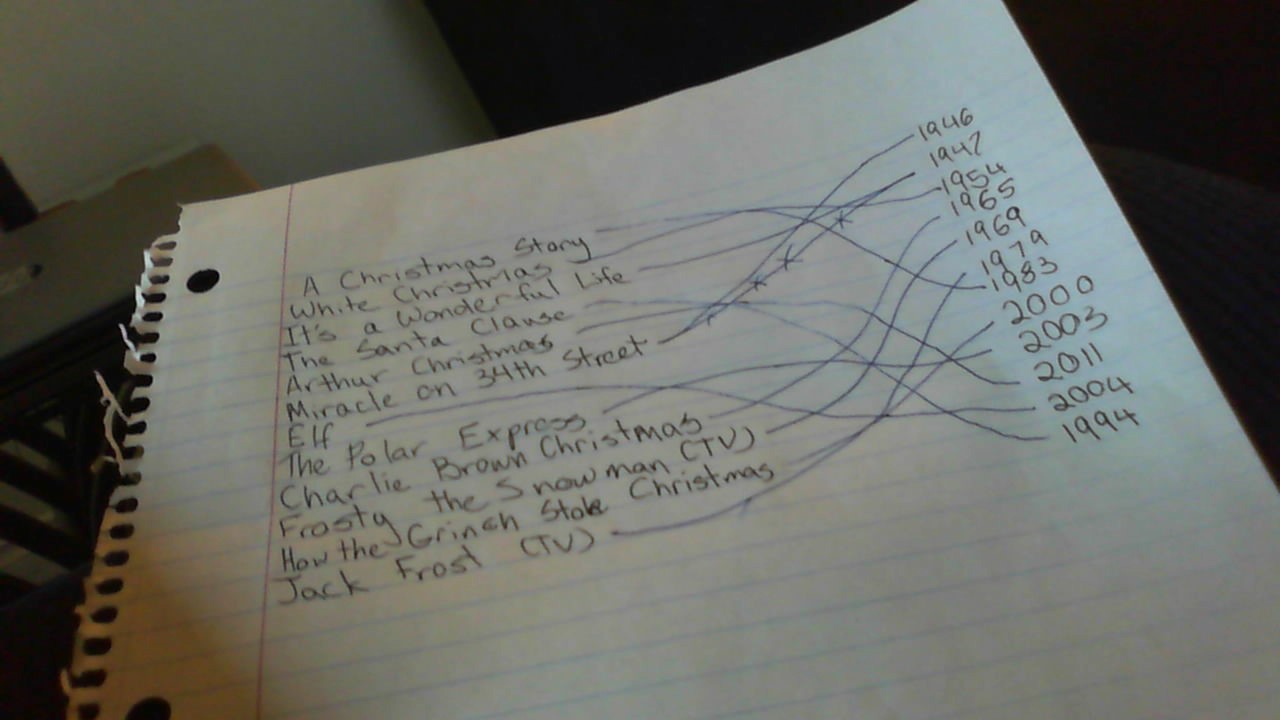 A Christmas Story
White Christmas
It's a Wonderful Life
The Santa Clause
Arthur Christmas
Miracle on 34th Street
Elf
The Polar Express
Charlie Brown Christmas
Frosty the Snowman (TV)
How the Grinch Stole Christmas
Jack Frost (TV)
1946
1947
1954
1965
1969
1979
1983
2000
2003
2011
2004
1994